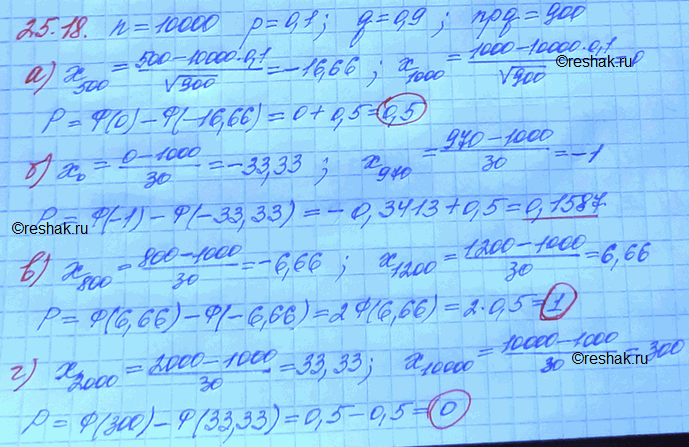 25.18. n = 10000 p = 0,1; q = 0,9; npq = 900
а) x₅₀₀ = (500 − 10000·0,1)/√900 = −16,66; x₁₀₀₀ = (1000 − 10000·0,1)/√900 = 0
©reshak.ru
P = Φ(0) − Φ(−16,66) = 0 + 0,5 = 0,5
б) x₀ = (0 − 1000)/30 = −33,33; x₉₇₀ = (970 − 1000)/30 = −1
P = Φ(−1) − Φ(−33,33) = −0,3413 + 0,5 = 0,1587
©reshak.ru
©reshak.ru
в) x₈₀₀ = (800 − 1000)/30 = −6,66; x₁₂₀₀ = (1200 − 1000)/30 = 6,66
P = Φ(6,66) − Φ(−6,66) = 2Φ(6,66) = 2·0,5 = 1
г) x₂₀₀₀ = (2000 − 1000)/30 = 33,33; x₁₀₀₀₀ = (10000 − 1000)/30 = 300
©reshak.ru
P = Φ(300) − Φ(33,33) = 0,5 − 0,5 = 0